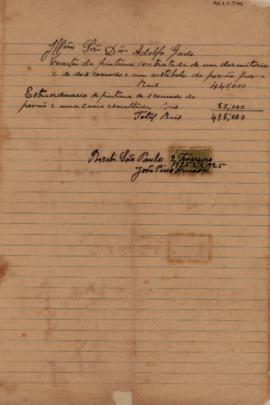 Illmo Snr Dor Adolfo Gordo
pintura contratada de um dormitorio
e de dois comodo e um vestibulo do porão por
Reis 440,000
Extraordinario de pintura de 1 comodo do
porão e uma cama esmaltada Reis 55,000
Total Reis 495,000
Recebi São Paulo 2 Fevereiro
João